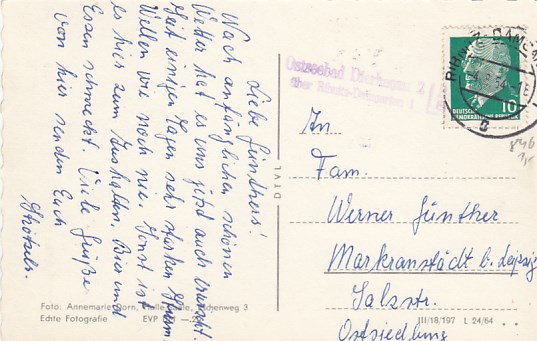 Liebe Günthers!
Nach anfänglichen schönen
Wetter hat es uns jetzt auch erwischt.
Seit einigen Tagen sehr starken Sturm.
Wellen wie noch nie. Sonst ist
es hier zum Aushalten. Bier und
Essen schmeckt. Viele Grüße
von hier senden Euch
Foto: Annemarie
Echte Fotografie EVP
DIVAL
III/18/197 L 24/64
Ostseebad Dierhagen 2
über Ribnitz-Damgarten 1
RIBNITZ-DAMG
DEUTSCHE
DEMOKRATISCHE REPUBLIK
10
In
Fam.
Werner Günther
Markranstädt b. Leipzig
Salzstr.
Ostsiedlung